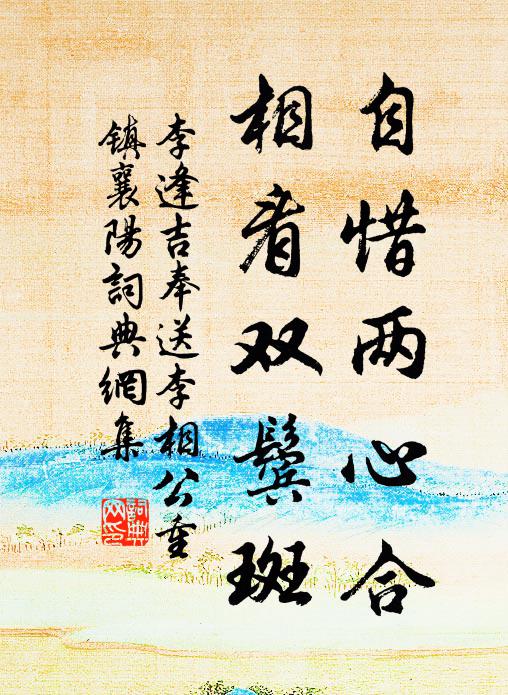 自惜两心合
相看双鬓斑
李逢吉奉送李相公重
镇襄陽詞典網集
詞典
网印